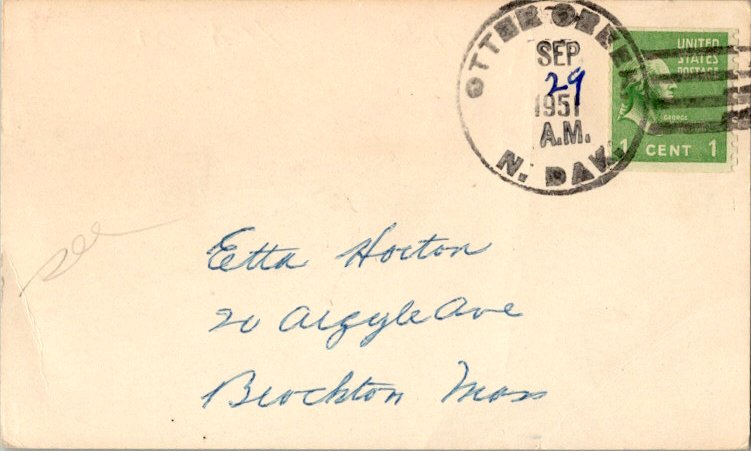 OTTER CREEK
SEP
29
1951
A.M.
N. DAK.
UNITED
STATES
POSTAGE
GEORGE
1 CENT 1
see
Etta Horton
20 Argyle Ave
Brockton Mass